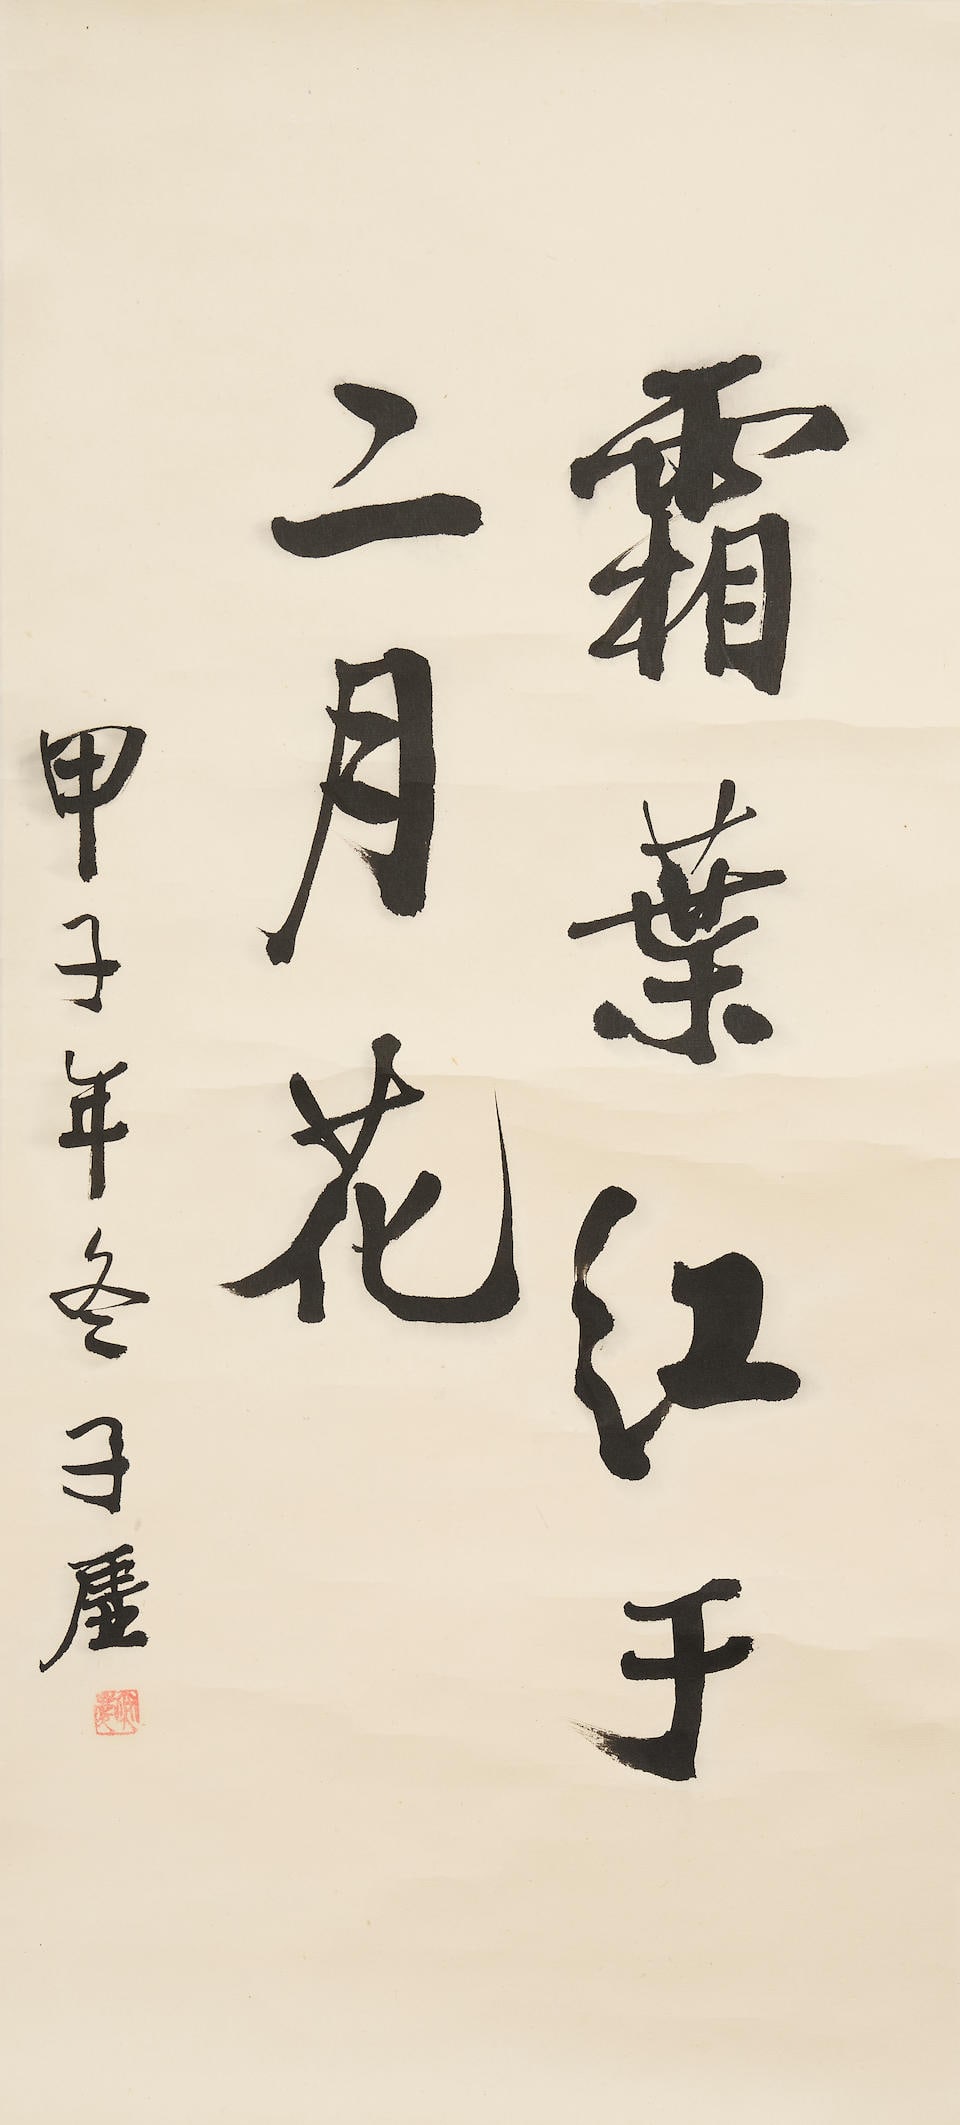 霜葉紅于
二月花
甲子年冬子